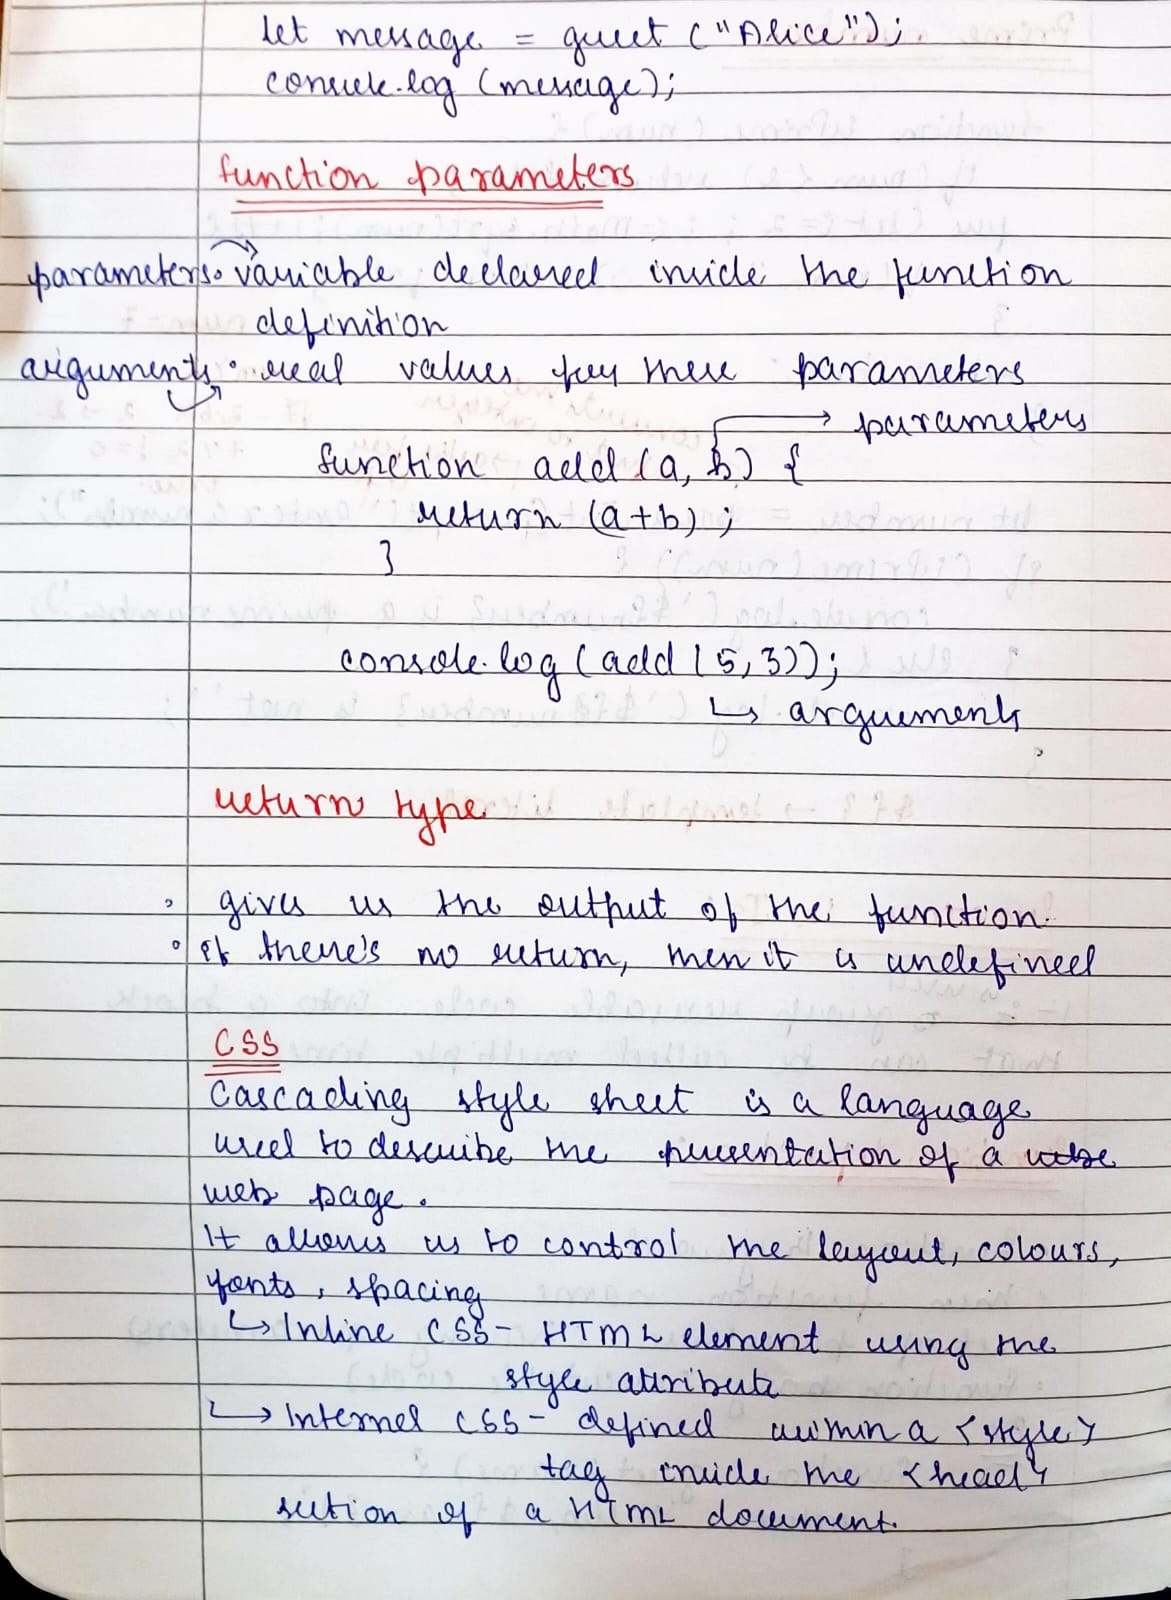 let message = greet ("Alice");
console.log (message);
function parameters
parameters • variable declared inside the function
definition
arguments • real values for these parameters
→ parameters
function add (a, b) {
return (a+b) ;
}
console.log ( add (5,3));
↳ arguements
return type
• gives us the output of the function.
• if there's no return, then it is undefined
CSS
Cascading style sheet is a language
used to describe the presentation of a
web page.
It allows us to control the layout, colours,
fonts, spacing
↳ Inline CSS - HTML element using the
style attribute
↳ Internal CSS - defined within a <style>
tag inside the <head>
section of a HTML document.